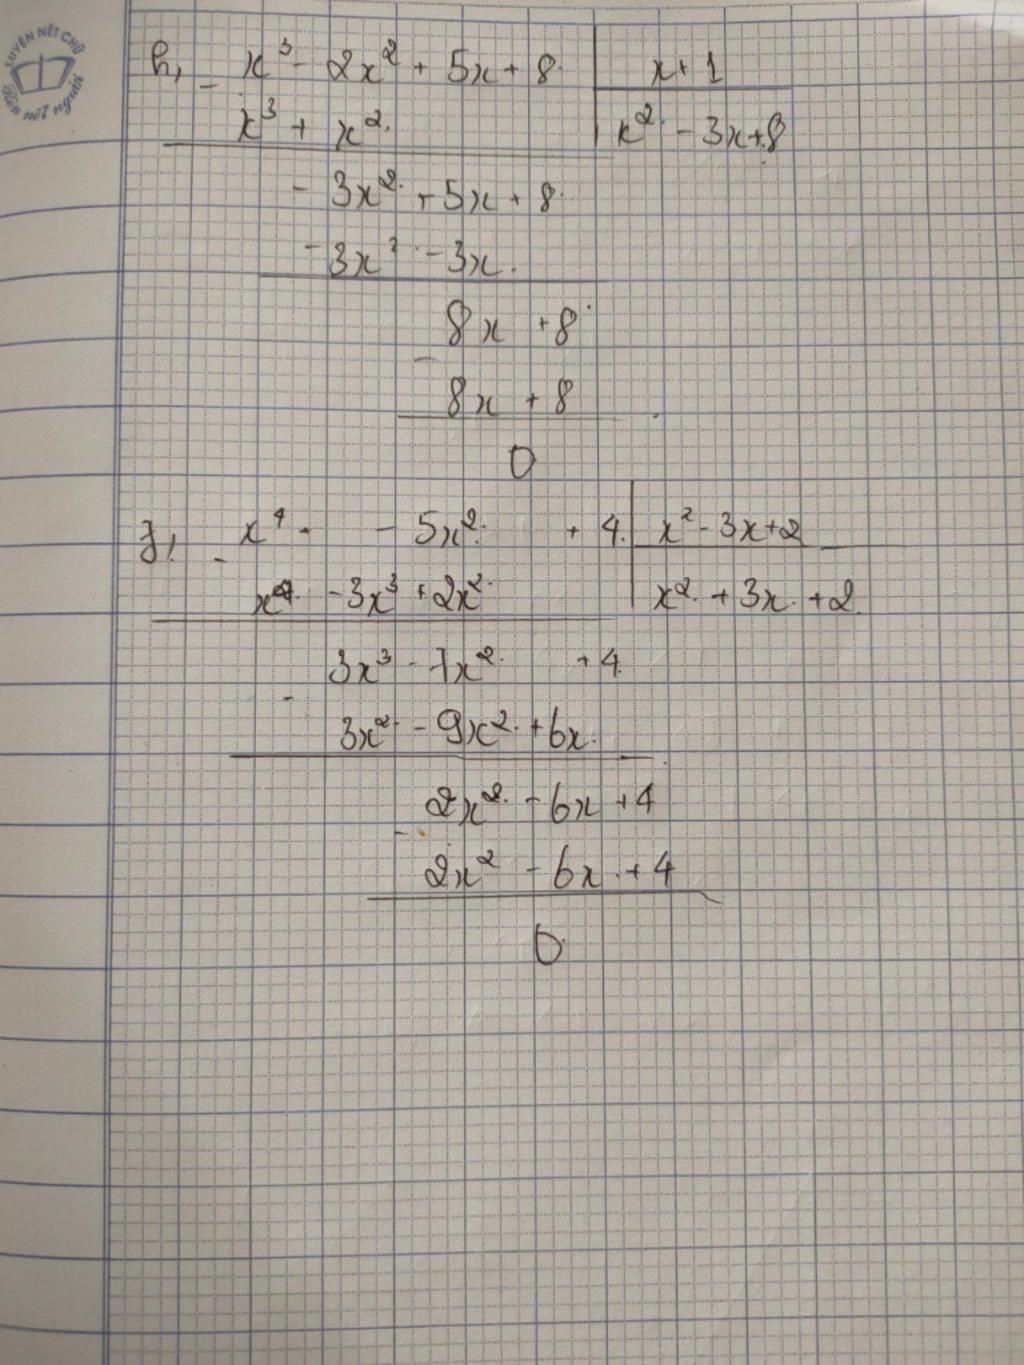 LUYỆN NÉT CHỮ
Rèn nết người
h, x³ - 2x² + 5x + 8 | x + 1
- x³ + x² | x² - 3x + 8
- 3x² + 5x + 8
- 3x² - 3x
8x + 8
-
8x + 8
0
j, x⁴ - 5x² + 4 | x² - 3x + 2
- x⁴ - 3x³ + 2x² | x² + 3x + 2
3x³ - 7x² + 4
-
3x² - 9x² + 6x
2x² - 6x + 4
-
2x² - 6x + 4
0